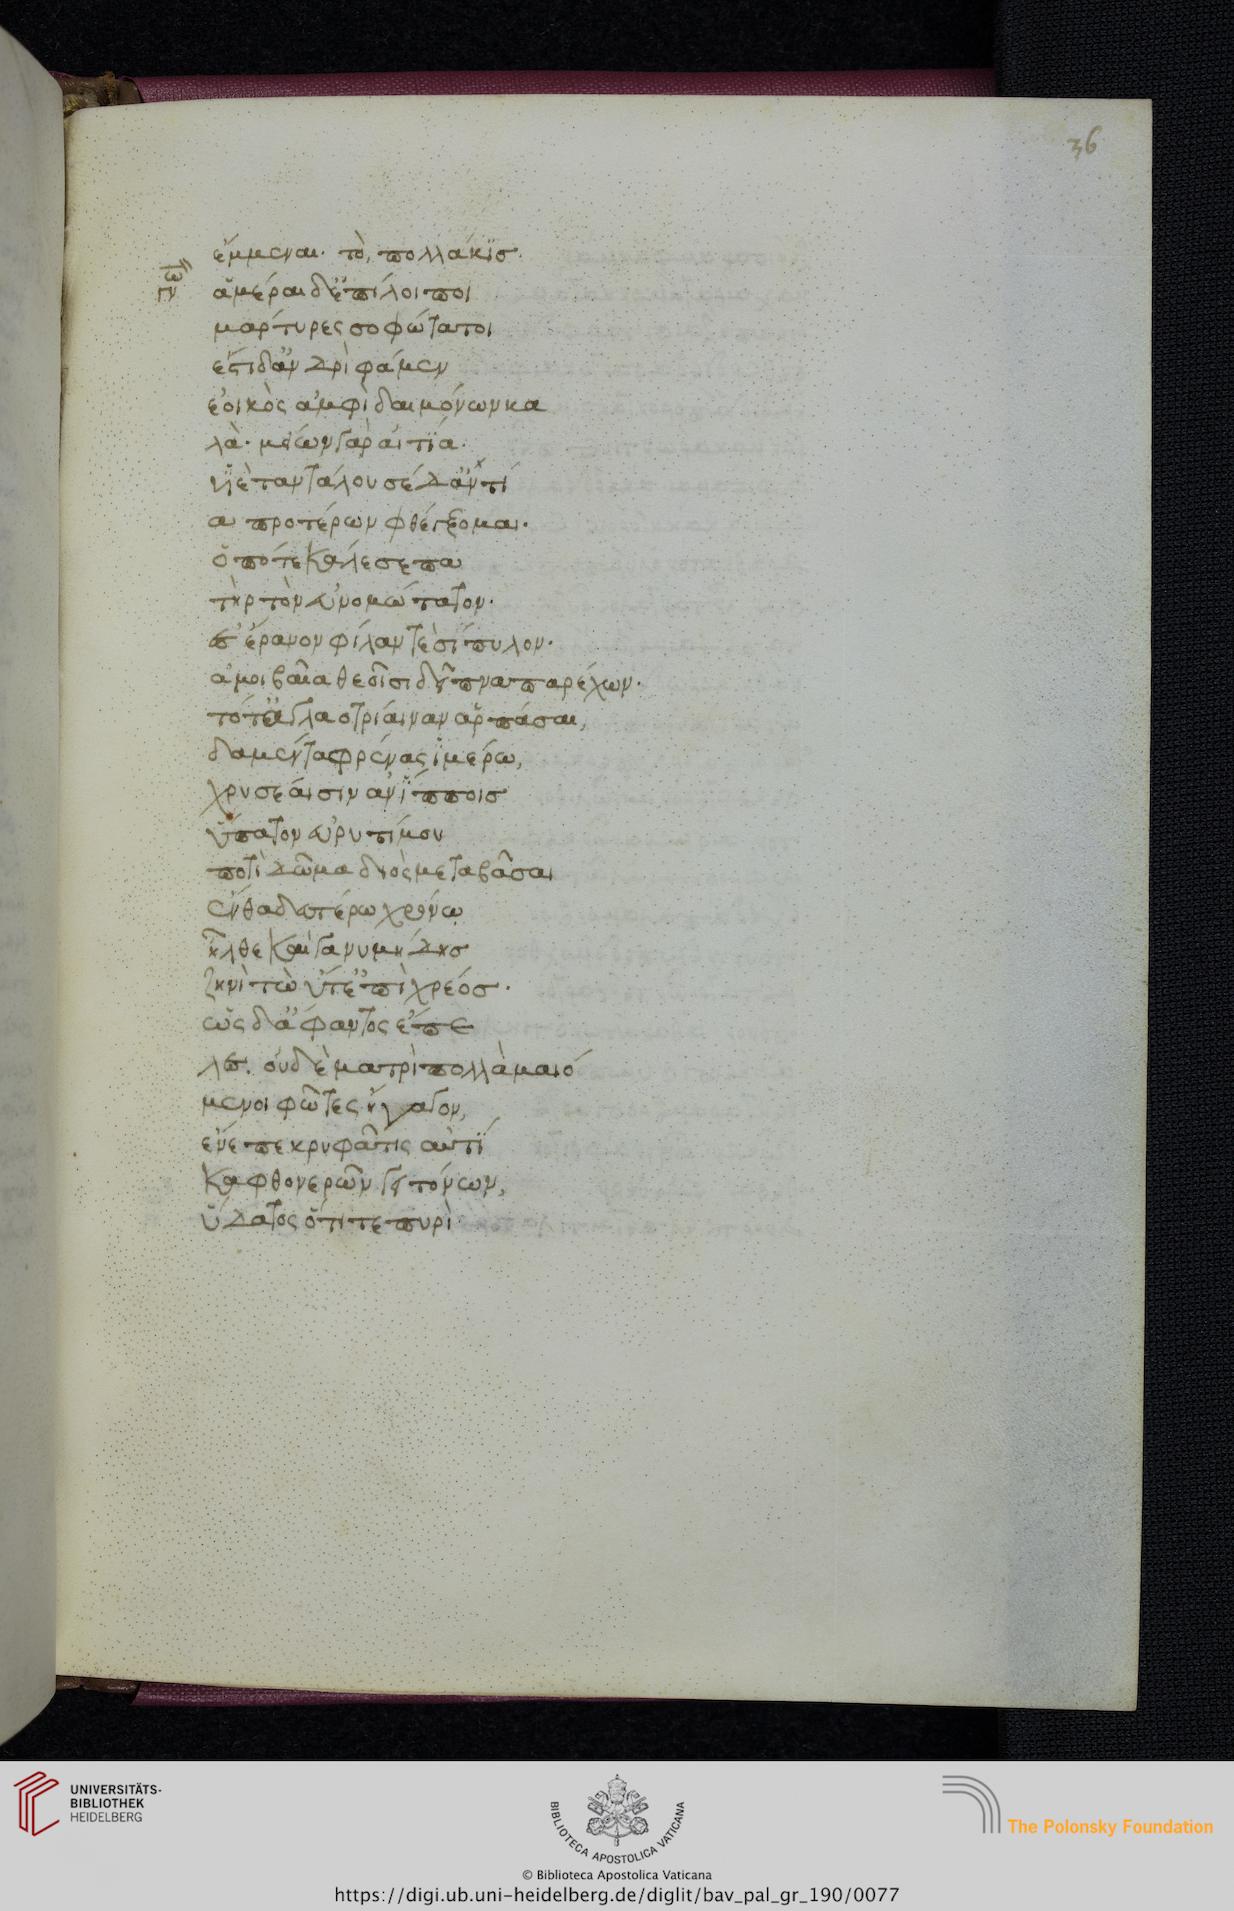 36
ἔμμεναι· τὸ, πολλάκϊσ·
ἁμέραι δ' ἐπίλοιποι
μάρτυρες σοφώτατοι
ἔστι δ' ἀνδρὶ φάμεν
ἐοικὸς ἀμφὶ δαιμόνων κα
λά· μείων γὰρ αἰτΐα·
υἱὲ ταντάλου σὲ δ' ἀντί
α προτέρων φθέγξομαι·
ὁπότε κάλεσε πα
τὴρ τὸν εὐνομώτατον·
ἐς ἔρανον φίλαν τὲ σίπυλον·
ἀμοιβαῖα θεοῖσι δεῖπνα παρέχων·
τότ' ἀγλαοτρίαιναν ἁρπάσαι,
δαμέντα φρένας ἱμέρω,
χρυσέαισιν ἀν' ἵπποισ
ὕπατον εὐρυτίμου
ποτὶ δῶμα διὸς μεταβᾶσαι
ἔνθα δευτέρω χρόνω
ἦλθε καὶ γανυμήδησ
ζηνὶ τὼυτ' ἐπὶ χρέοσ·
ὡς δ' ἄφαντος ἔπε
λες. οὐδὲ ματρὶ πολλὰ μαιό
μενοι φῶτες ἤγαγον,
ἔνεπε κρυφᾶ τὶς αὐτΐ
κα φθονερῶν γειτόνων,
ὕδατος ὅτι τε πυρὶ
UNIVERSITÄTS-
BIBLIOTHEK
HEIDELBERG
BIBLIOTECA APOSTOLICA VATICANA
The Polonsky Foundation
© Biblioteca Apostolica Vaticana
https://digi.ub.uni-heidelberg.de/diglit/bav_pal_gr_190/0077